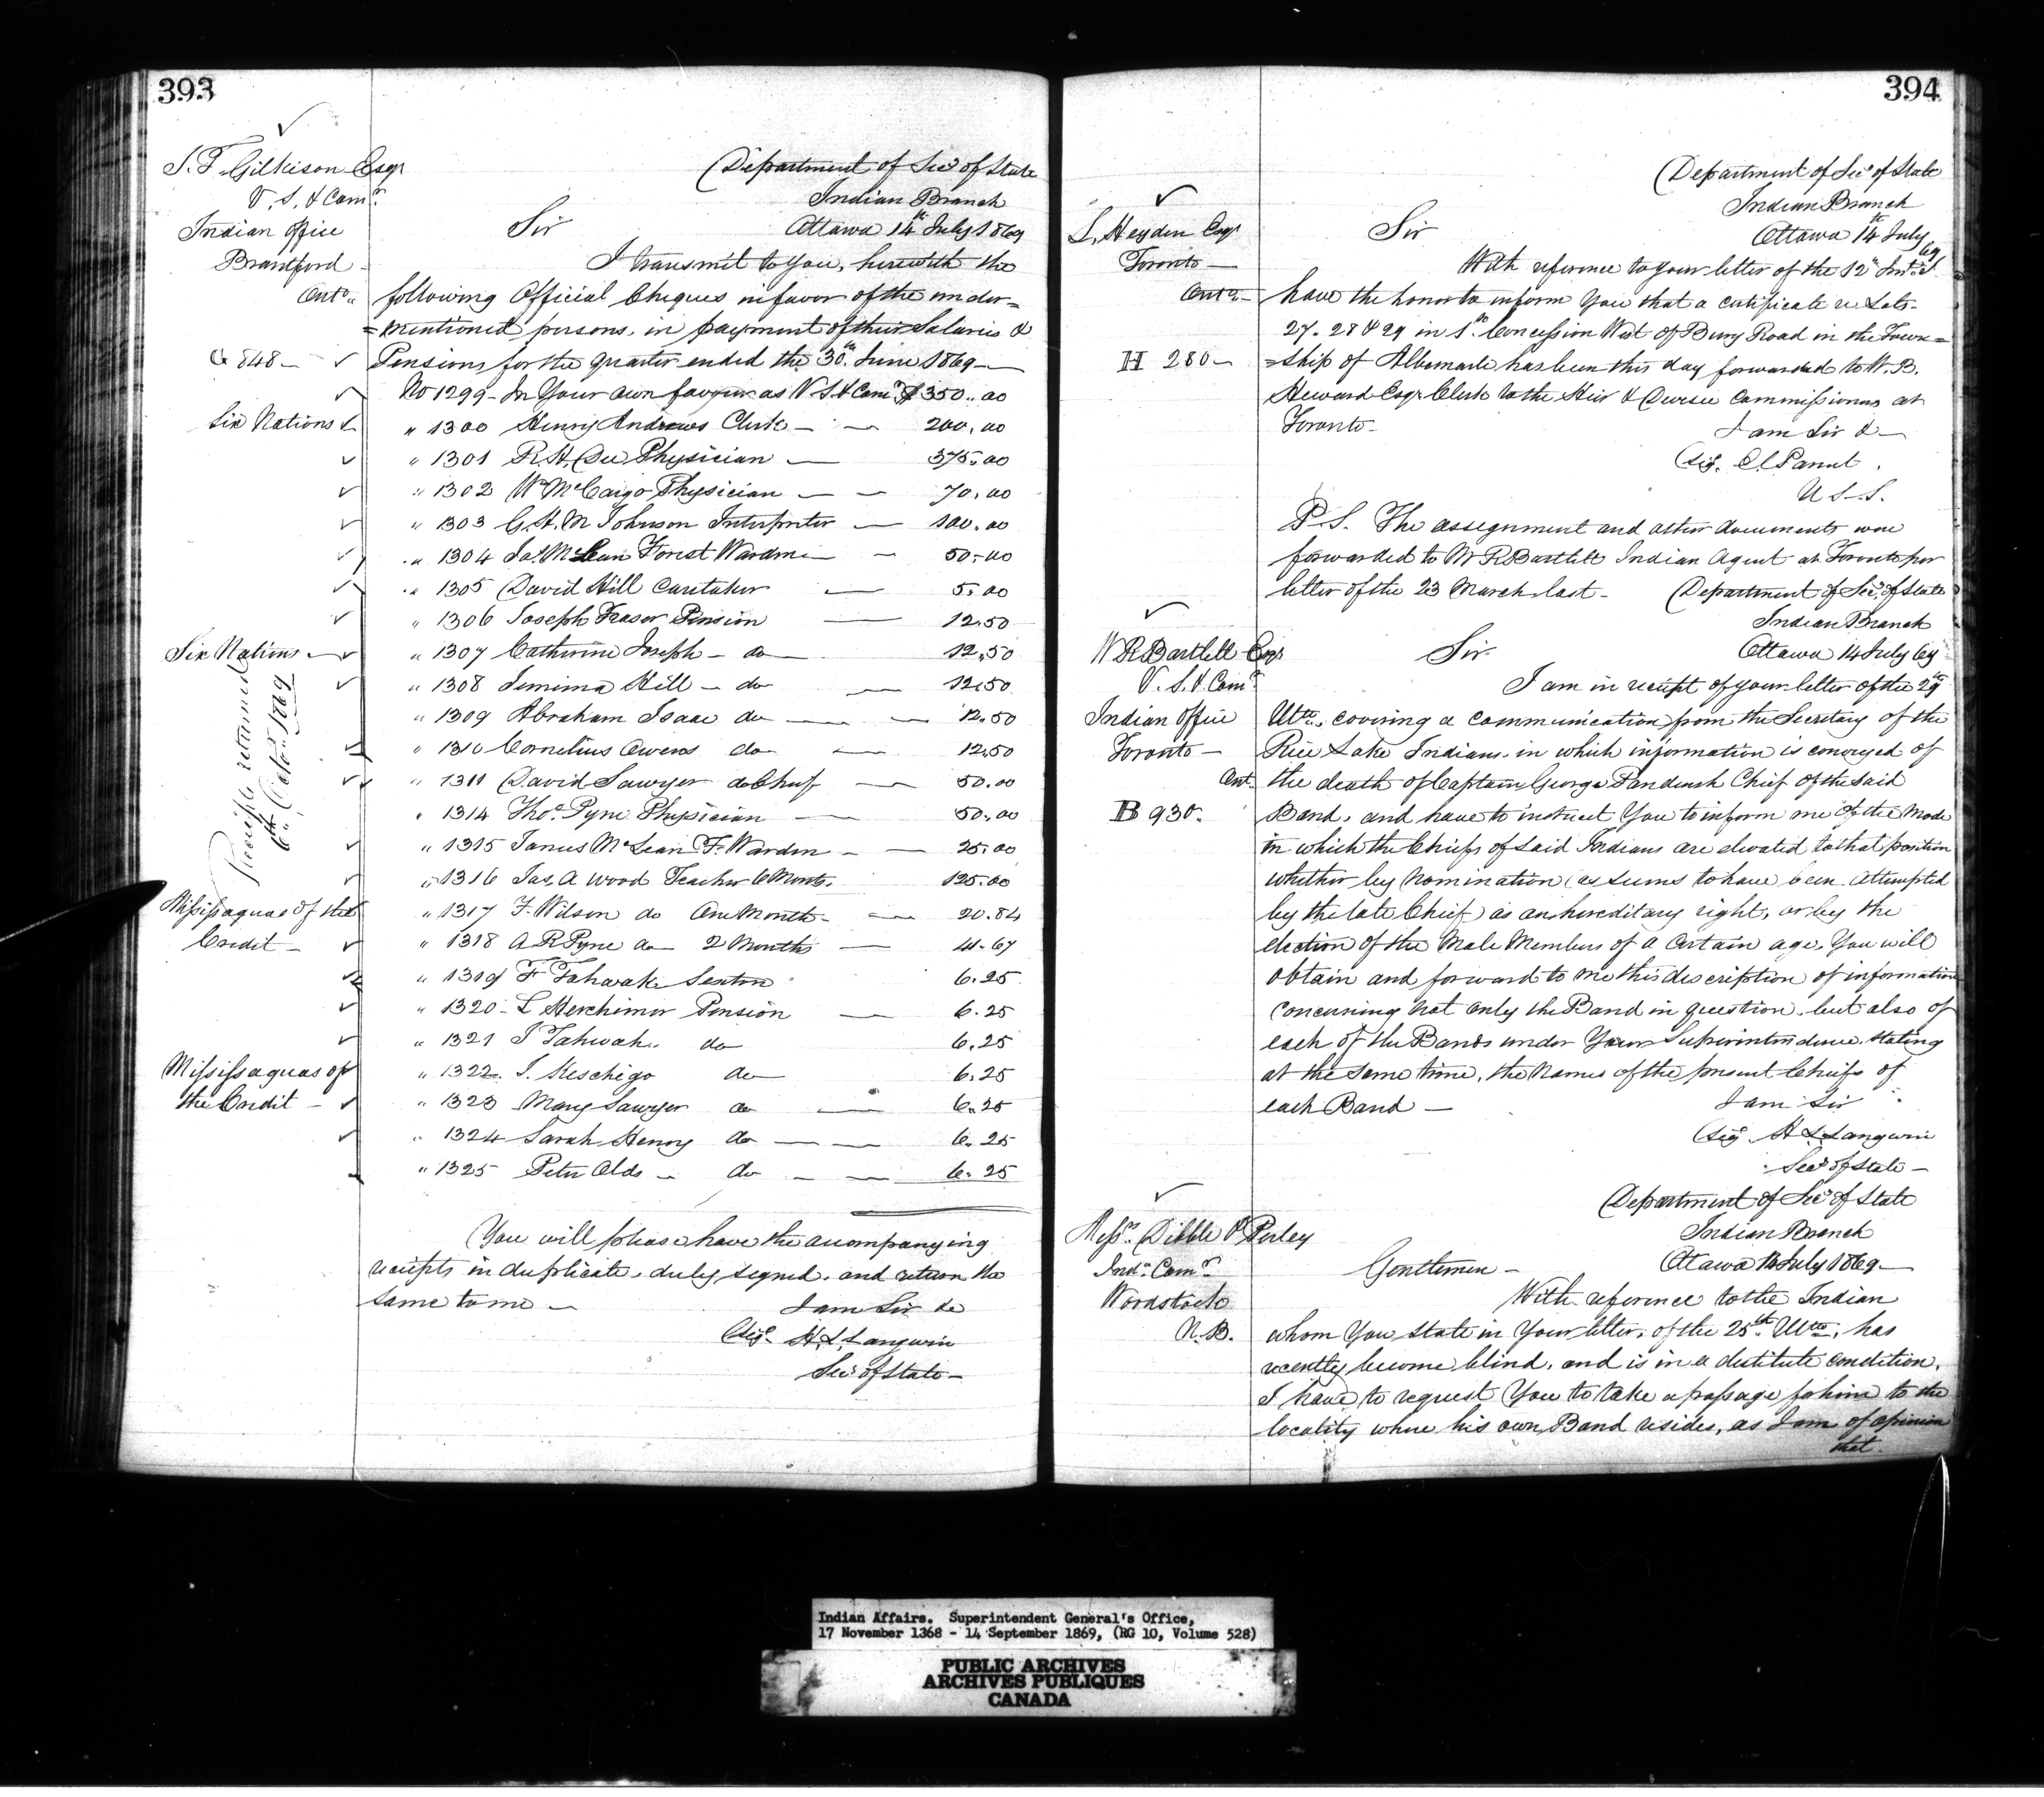 393
J. T. Gilkison Esqr
V. S. & Comr.
Indian Office
Brantford
Onto.
Department of Secy of State
Indian Branch
Ottawa 14th July 1869
Sir
I transmit to you, herewith the
following Official Cheques in favor of the under=
=mentioned persons, in payment of their Salaries &
G 848 – Pensions for the quarter ended the 30th June 1869 –
No 1299 – In Your own favour as V. S. & Comr. $350..00
Six Nations
" 1300 Henry Andrews Clerk – 200.00
" 1301 R. H. Dee Physician – 375.00
" 1302 W McCargo Physician – 70.00
" 1303 G. H. M Johnson Interpreter – 100.00
" 1304 Jas. McLean Forest Warden – 50.00
" 1305 David Hill Caretaker – 5.00
" 1306 Joseph Fraser Pension – 12.50
Six Nations –
" 1307 Catherine Joseph – do – 12.50
" 1308 Jemima Hill – do – 12.50
" 1309 Abraham Isaac do – 12.50
" 1310 Cornelius Owens do – 12.50
" 1311 David Sawyer do Chief – 50.00
" 1314 Thos. Pyne Physician – 50.00
" 1315 James McLean F. Warden – 25.00
" 1316 Jas. A Wood Teacher 6 Months. 125.00
Receipts returned
6th Octor. 1869
Mississaguas of the
Credit –
" 1317 F. Wilson do One Month – 20.84
" 1318 A R Pyne do 2 Months – 41.67
" 1319 F Tahwah Sexton 6.25
" 1320 – L Herchimer Pension – 6.25
" 1321 J Tahwah do 6.25
Mississaguas of
the Credit –
" 1322 J. Keschego do 6.25
" 1323 Mary Sawyer do – 6.25
" 1324 Sarah Henry do – 6.25
" 1325 Peter Olds – do – 6.25
You will please have the accompanying
receipts in duplicate, duly signed, and return the
same to me –
I am Sir &c
Sigd. H. L. Langevin
Secy of State –
394
Department of Secy of State
Indian Branch
Ottawa 14th July 69
L. Heyden Esqr
Toronto –
Onto. –
Sir
With reference to your letter of the 12th Inst. I
have the honor to inform You that a certificate re Lots
27. 28 & 29 in 1st. Concession West of Bury Road in the Town=
H 280 – =ship of Albemarle has been this day forwarded to W. B.
Heward Esqr Clerk to the Heir & Devisee Commissioners at
Toronto –
I am Sir &
Sigd. E Parent.
U S S.
P. S. The assignment and other documents were
forwarded to W R Bartlett Indian Agent at Toronto per
letter of the 23 March last –
Department of Secy. of State
Indian Branch
Ottawa 14 July 69
W R Bartlett Esqr
V. S. & Comr.
Indian Office
Toronto –
Ont.
Sir
I am in receipt of your letter of the 29th
Ulto., covering a communication from the Secretary of the
Rice Lake Indians in which information is conveyed of
the death of Captain George Paudaush Chief of the said
B 930. Band, and have to instruct You to inform me of the Mode
in which the Chiefs of said Indians are elevated to that position
whether by nomination (as seems to have been attempted
by the late Chief) as an hereditary right, or by the
election of the Male Members of a certain age, You will
obtain and forward to me this description of information
concerning not only the Band in question, but also of
each of the Bands under Your Superintendence, stating
at the same time, the names of the present Chiefs of
each Band –
I am Sir
Sigd. H L Langevin
Secy of State –
Department of Secy of State
Indian Branch
Ottawa 14 July 1869 –
Messrs. Dibble & Perley
Indn. Comrs.
Woodstock
N. B.
Gentlemen –
With reference to the Indian
whom You state in Your letter, of the 25th Ulto., has
recently become blind, and is in a destitute condition,
I have to request You to take a passage for him to the
locality where his own Band resides, as I am of opinion
that
Indian Affairs. Superintendent General's Office,
17 November 1368 - 14 September 1869, (RG 10, Volume 528)
PUBLIC ARCHIVES
ARCHIVES PUBLIQUES
CANADA